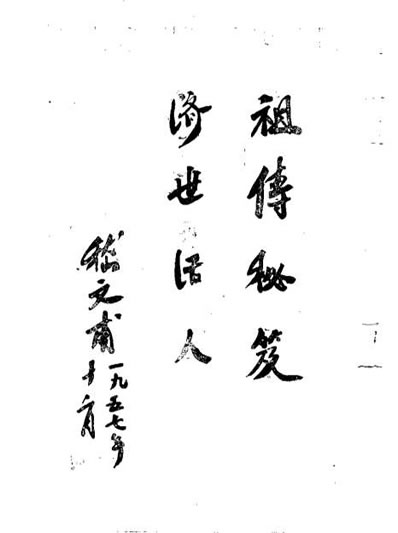 祖傳秘笈
济世活人
嵇文甫
一九五七年
十二月